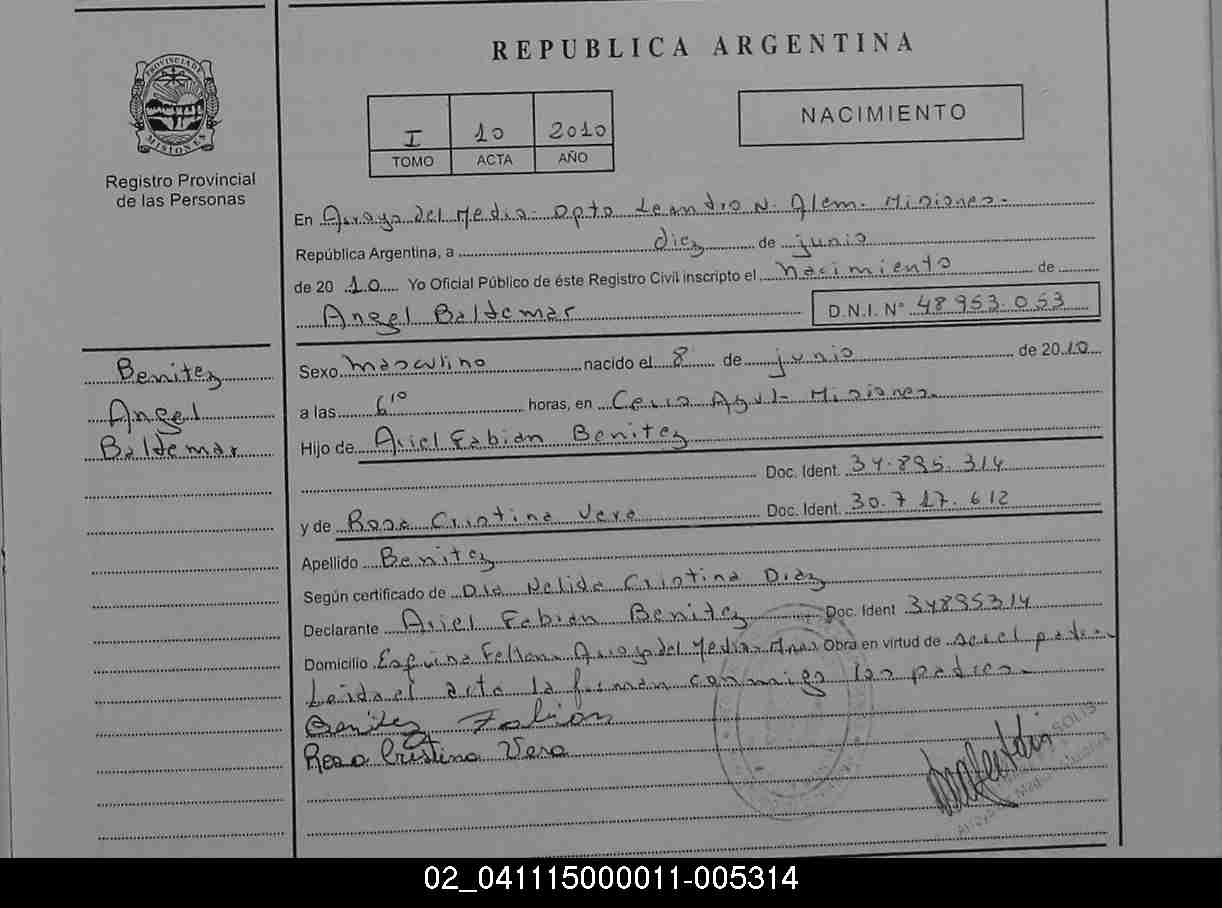 REPUBLICA ARGENTINA
PROVINCIA DE
MISIONES
Registro Provincial
de las Personas
I 10 2010
TOMO ACTA AÑO
NACIMIENTO
En Arroyo del Medio - Dpto Leandro N. Alem - Misiones.-
República Argentina, a diez de junio
de 20 10 Yo Oficial Público de éste Registro Civil inscripto el Nacimiento de
Angel Baldemar D.N.I. N° 48953.053
Benitez
Angel
Baldemar
Sexo masculino nacido el 8 de junio de 2010
a las 6'10 horas, en Cerro Azul - Misiones.
Hijo de Ariel Fabian Benitez
Doc. Ident. 34.895.314
y de Rosa Cristina Vera Doc. Ident. 30.717.612
Apellido Benitez
Según certificado de Dra Nelida Cristina Diaz
Declarante Ariel Fabian Benitez Doc. Ident 34895314
Domicilio Esquina Arroyo del Medio Obra en virtud de ser el padre.
Leida el acta la firman conmigo los padres.-
Benitez Fabian
Rosa Cristina Vera
SOLIS
02_041115000011-005314